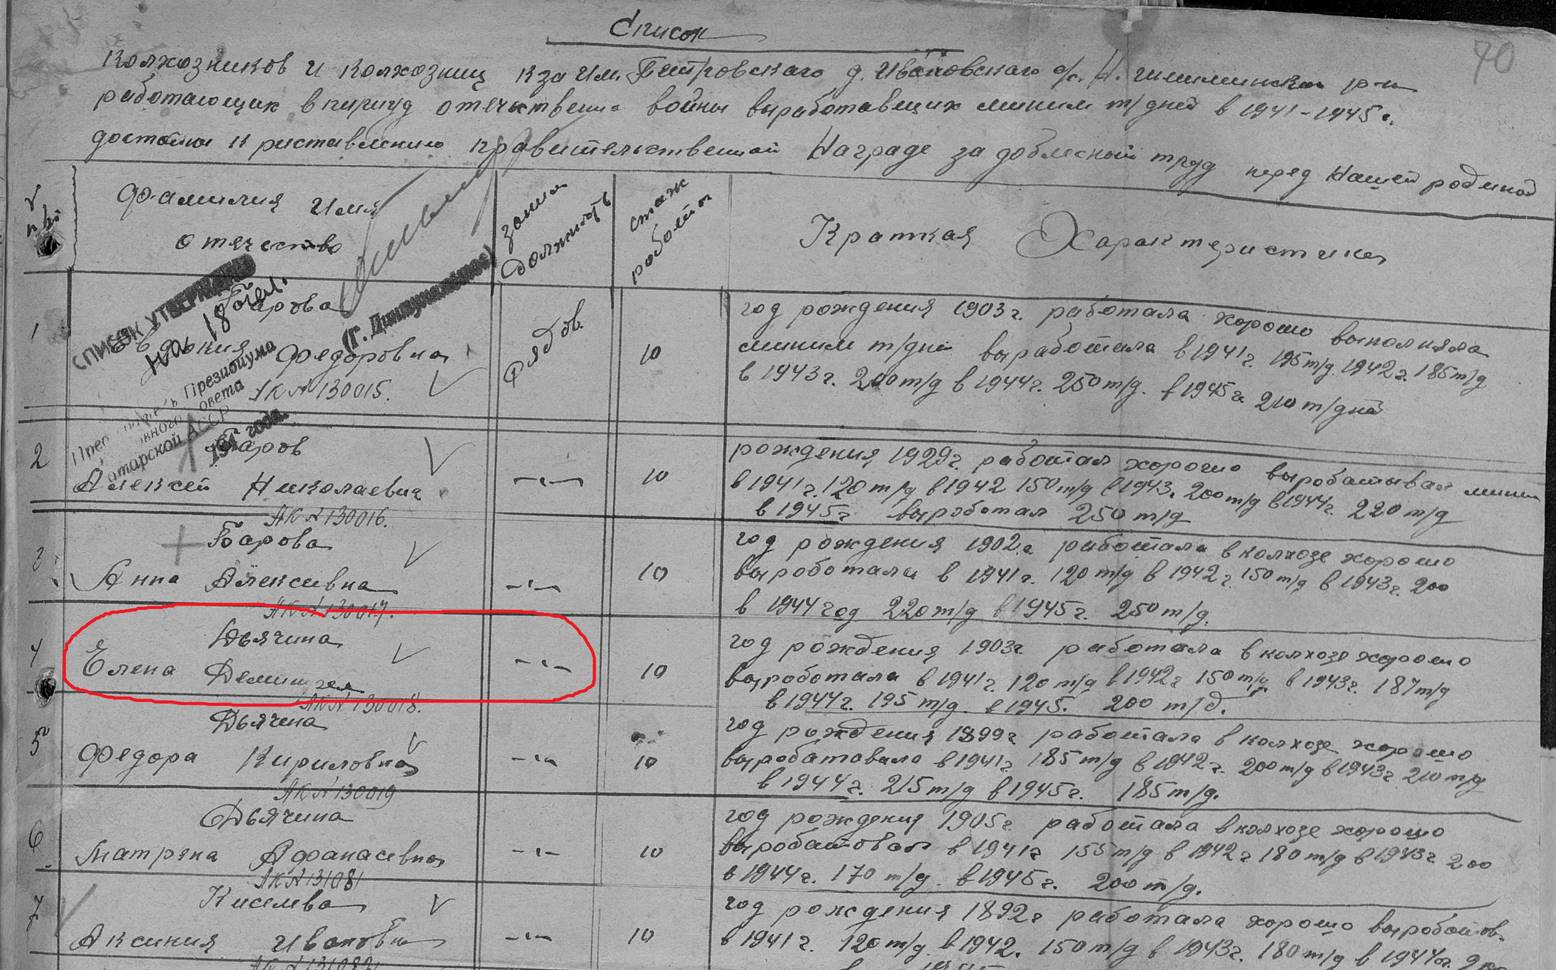 Список
70
колхозников и колхозниц к-за им. Петровского д. Ивановского с/с Н. шишминском р-на
работающих в период отечествена войны выработавших миним т/дней в 1941-1945г.
достойны к риставлению правительственной Награде за доблесный труд перед Нашей родиной
№ п/п
Фамилия имя
отчество
звания
должность
стаж
работы
Краткая Характеристика
СПИСОК УТВЕРЖДАЮ
на 18 чел.
Президиума
Верховного Совета
Татарской АССР
(Г. Динмухаметов)
194 года.
1
Барова
Евдокия Федоровна
АК № 130015.
рядов.
10
год рождения 1903г. работала хорошо выполняла
миним т/дней выработала в 1941г. 195 т/д 1942г. 185 т/д
в 1943г. 200 т/д в 1944г. 250 т/д. в 1945г. 210 т/дней
2
Баров
Алексей Николаевич
АК № 130016.
10
рождения 1929г. работал хорошо выработывал миним
в 1941г. 120 т/д в 1942 150 т/д в 1943. 200 т/д в 1944г. 220 т/д
в 1945г. выработал 250 т/д
3
Барова
Анна Алексивна
АК № 130017.
10
год рождения 1902г. работала в колхозе хорошо
выроботала в 1941г. 120 т/д в 1942г. 150 т/д в 1943г. 200
в 1944 год 220 т/д в 1945г. 250 т/д.
4
Дьячина
Елена
АК № 130018.
10
год рождения 1903г работала в колхозе хорошо
выроботала в 1941г. 120 т/д в 1942г 150 т/д в 1943г. 187 т/д
в 1944г. 195 т/д. в 1945. 200 т/д.
5
Дьячена
Федора Кириловна
АК № 130019
10
год рождения 1899г работала в колхозе хорошо
выработовала в 1941г 185 т/д в 1942г. 200 т/д в 1943г 210 т/д
в 1944г. 215 т/д в 1945г. 185 т/д.
6
Дьячина
Матряна Афанасевна
АК № 131081
10
год рождения 1905г работала в колхозе хорошо
выработовал в 1941г 155 т/д в 1942г 180 т/д в 1943г 200
в 1944г. 170 т/д. в 1945г. 200 т/д.
7
Киселева
Аксиния Ивановна
АК № 131082
10
год рождения 1892г работала хорошо выроботов.
в 1941г. 120 т/д. в 1942. 150 т/д. в 1943г. 180 т/д. в 1944г.